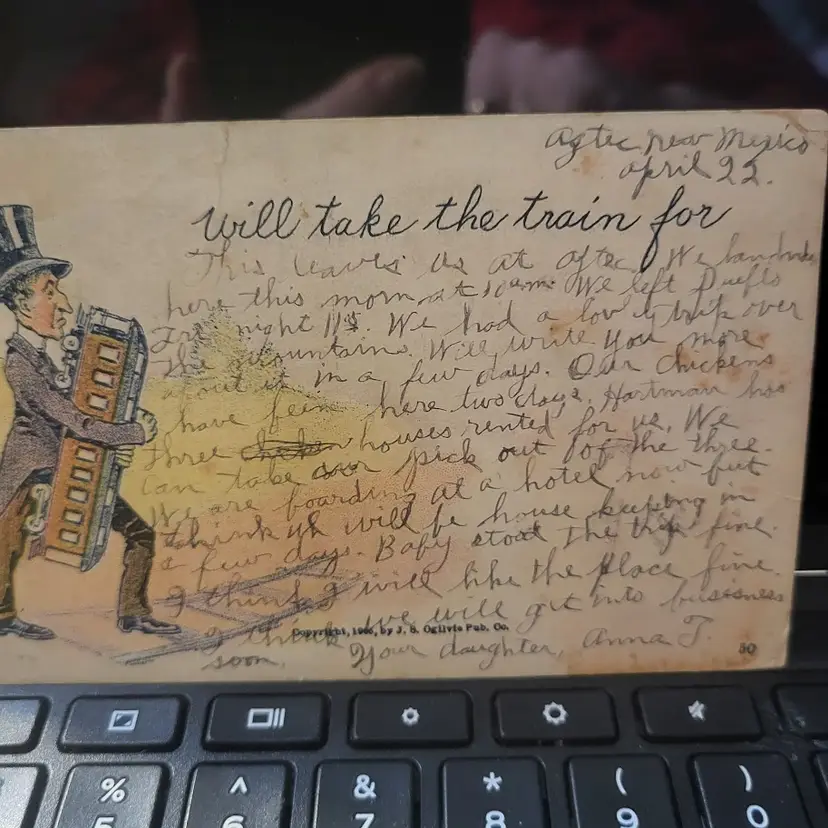 Aztec, New Mexico
April 22.
Will take the train for
This leaves us at Aztec, We landed
here this morn at 10 a.m. We left Pueblo
night We had a lovely trip over
the mountains. Will write you more
about it in a few days. Our chickens
have been here two days. Hartman has
three houses rented for us. We
can take our pick out of the three.
We are boarding at a hotel now but
think we will be house keeping in
a few days. Baby stood the trip fine.
I think I will like the place fine.
I think we will get into busisness
Copyright, 1906, by J. S. Ogilvie Pub. Co.
soon. Your daughter, Anna T.
50
% 5
^ 6
& 7
* 8
( 9
) 0